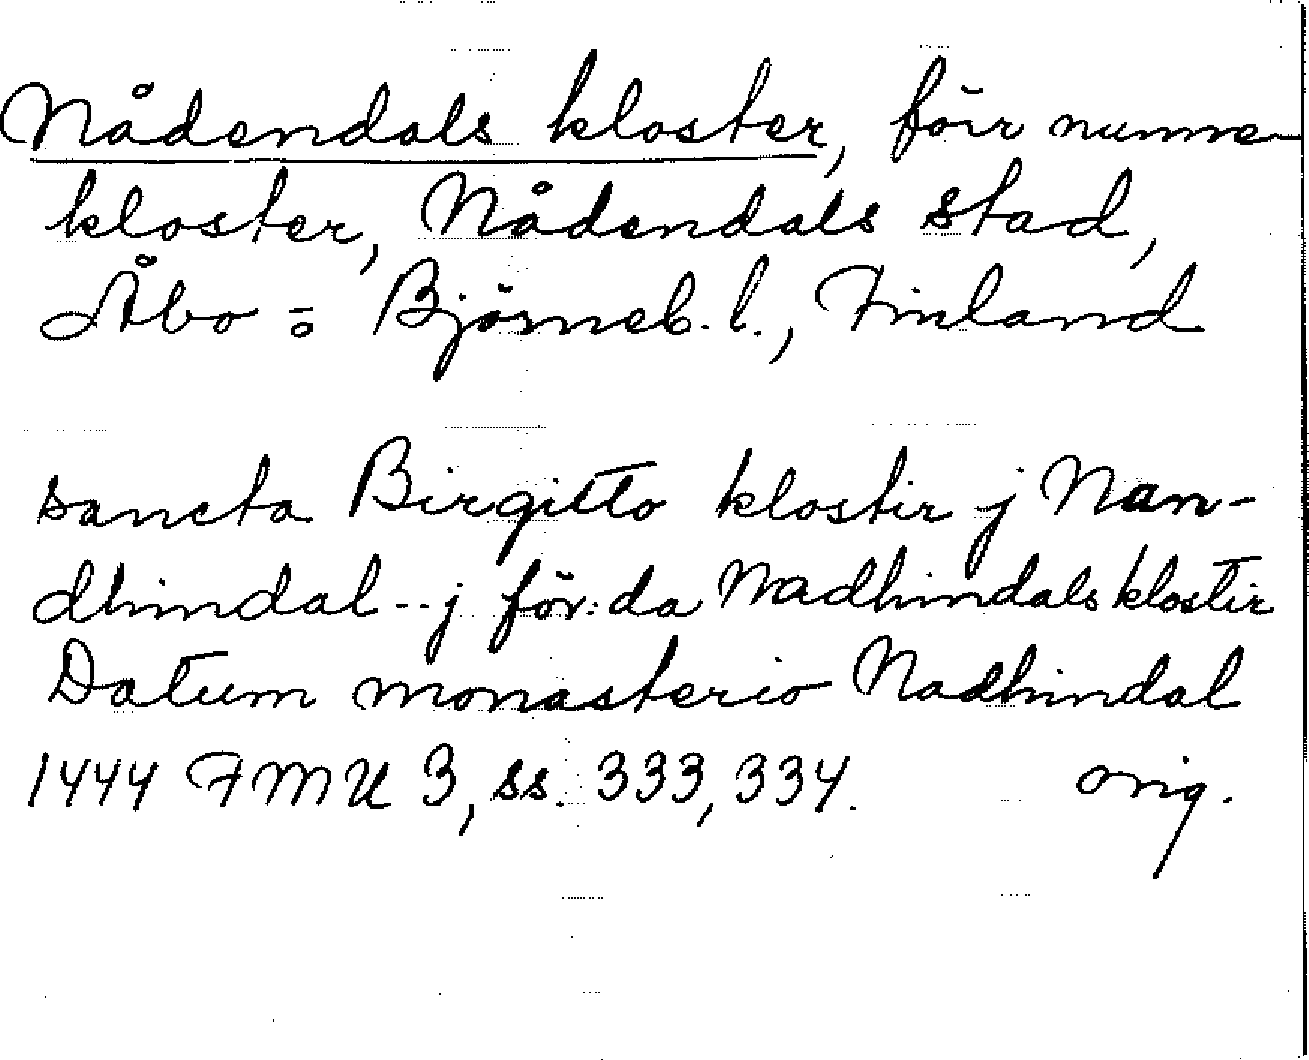 Nådendals kloster, förr nunne-
kloster, Nådendals stad,
Åbo o. Björneb. l., Finland
sancta Birgitto klostir j Nan-
dhindal -- j för:da Nadhindals klostir
Datum monasterio Nadhindal
1444 FMU 3, ss. 333, 334. orig.